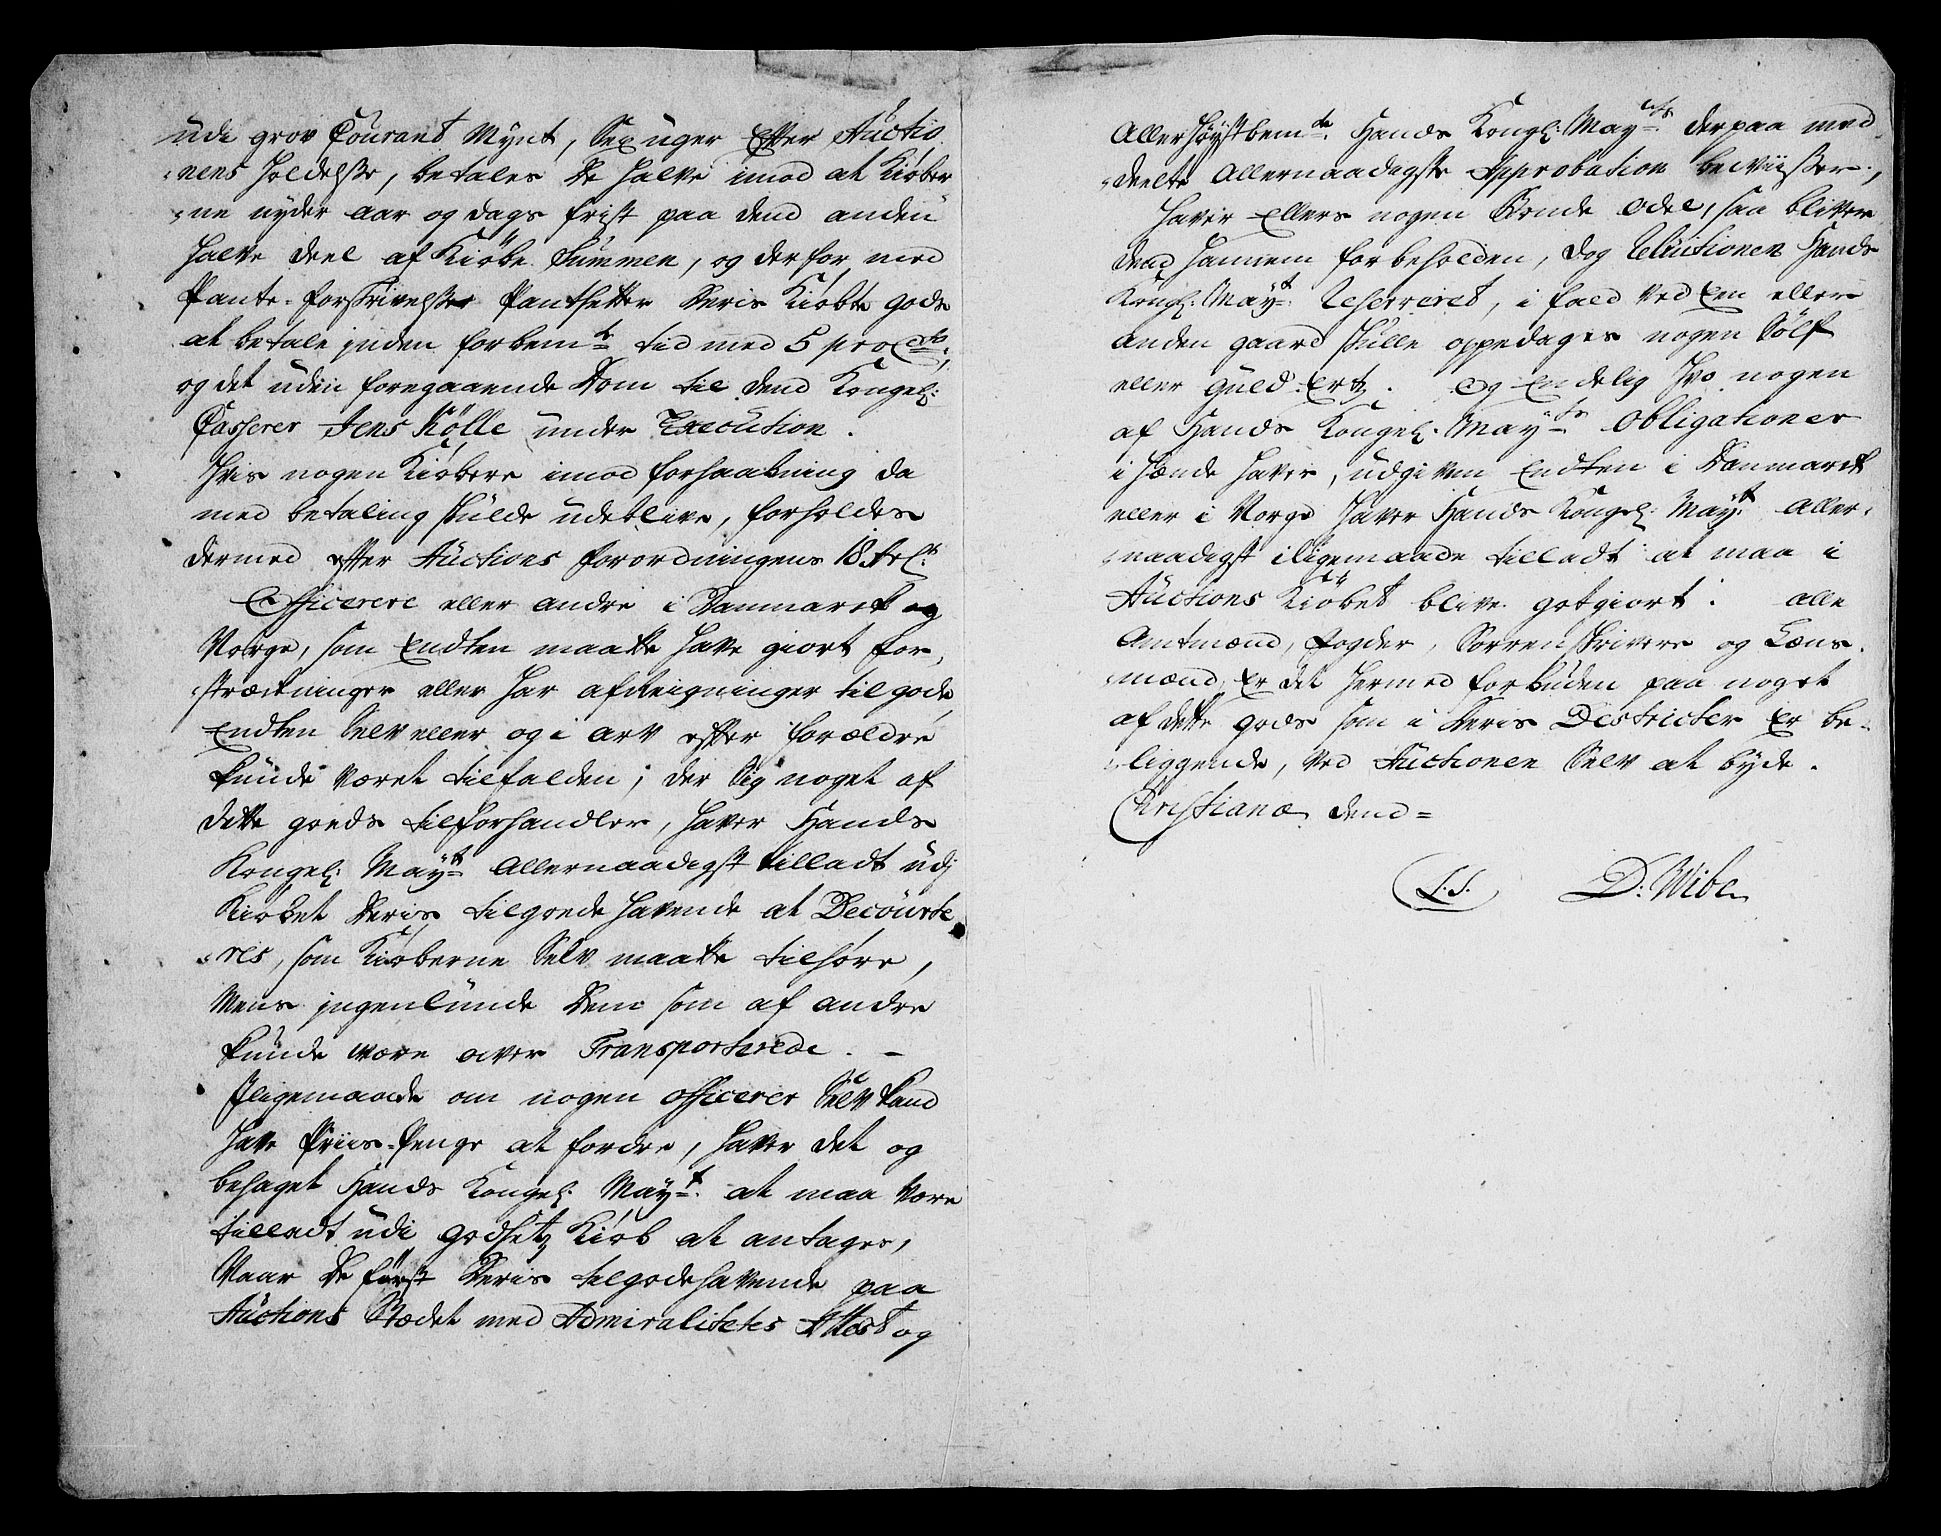 udi grov Courant Mynt, Sex uger Efter Auctio
nens holdelsse, betales De halve imod at Kiøber
ne nyder aar og dags frist paa dend anden
halve deel af Kiøbe Summen, og derfor med
Pante-forskrivelsser Pantsetter Deris Kiøbte gods
at betale jnden forbem.te tid med 5 procto,
og det uden foregaaende Dom til dend Kongel:
Casserer Jens Kølle under Execution.
Hvis nogen Kiøbere imod forhaabning da
med betaling skulde udeblive, forholdes
dermed efter Auctions forordningens 18 Artl:
Officerere eller andre i Danmarck og
Norge, som Endten maatte have giort for-
stræckninger eller har afreigninger til gode
Endten Selv eller og i arv efter forældre
kunde været tilfalden, der Sig noget af
dette goeds tilforhandler, haver Hands
Kongel: Mayt: Allernaadigst tilladt udj
Kiøbet Deris tilgoede havende at Decourte
res, som Kiøberne Selv maatte tilhøre,
Mens jngenlunde Dem som af andre
kunde være over Transporterede. —
Jligemaade om nogen officerer Selv kand
have Priis-Penge at fordre, haver det og
behaget Hands Kongel: Mayt: at maa være
tilladt udi godsetz Kiøb at antages,
Naar De først Deris tilgodehavende paa
Auctions Stædet med Admiralitetes Attest og
Allerhøystbemte Hands Kongl: Mayts derpaa med
deelte Allernaadigste Approbation beviisser,
Haver Ellers nogen Bonde Odel, saa bliver
dend hannem forbeholden, dog Relutionen Hands
Kongl: Mayt: Reserveret, i fald ved Een eller
anden gaard skulle oppedages nogen Sølf
eller Guld-Ertz. Og Endelig hvo nogen
af Hands Kongel: Mayts Obligationer
i hænde haver, udgiven Endten i Danmarck
eller i Norge haver Hands Kongel: Mayt: Aller-
naadigst iligemaade tilladt at maa i
Auctions Kiøbet blive gotgiort. Alle
Amtmænd, fogder, Sorrenskrivere og Læns-
mænd, Er det hermed forbuden paa noget
af dette gods som i Deris Destricter Er be-
liggende, ved Auctionen Selv at byde.
Christiania dend =
L.S. D: Wibe